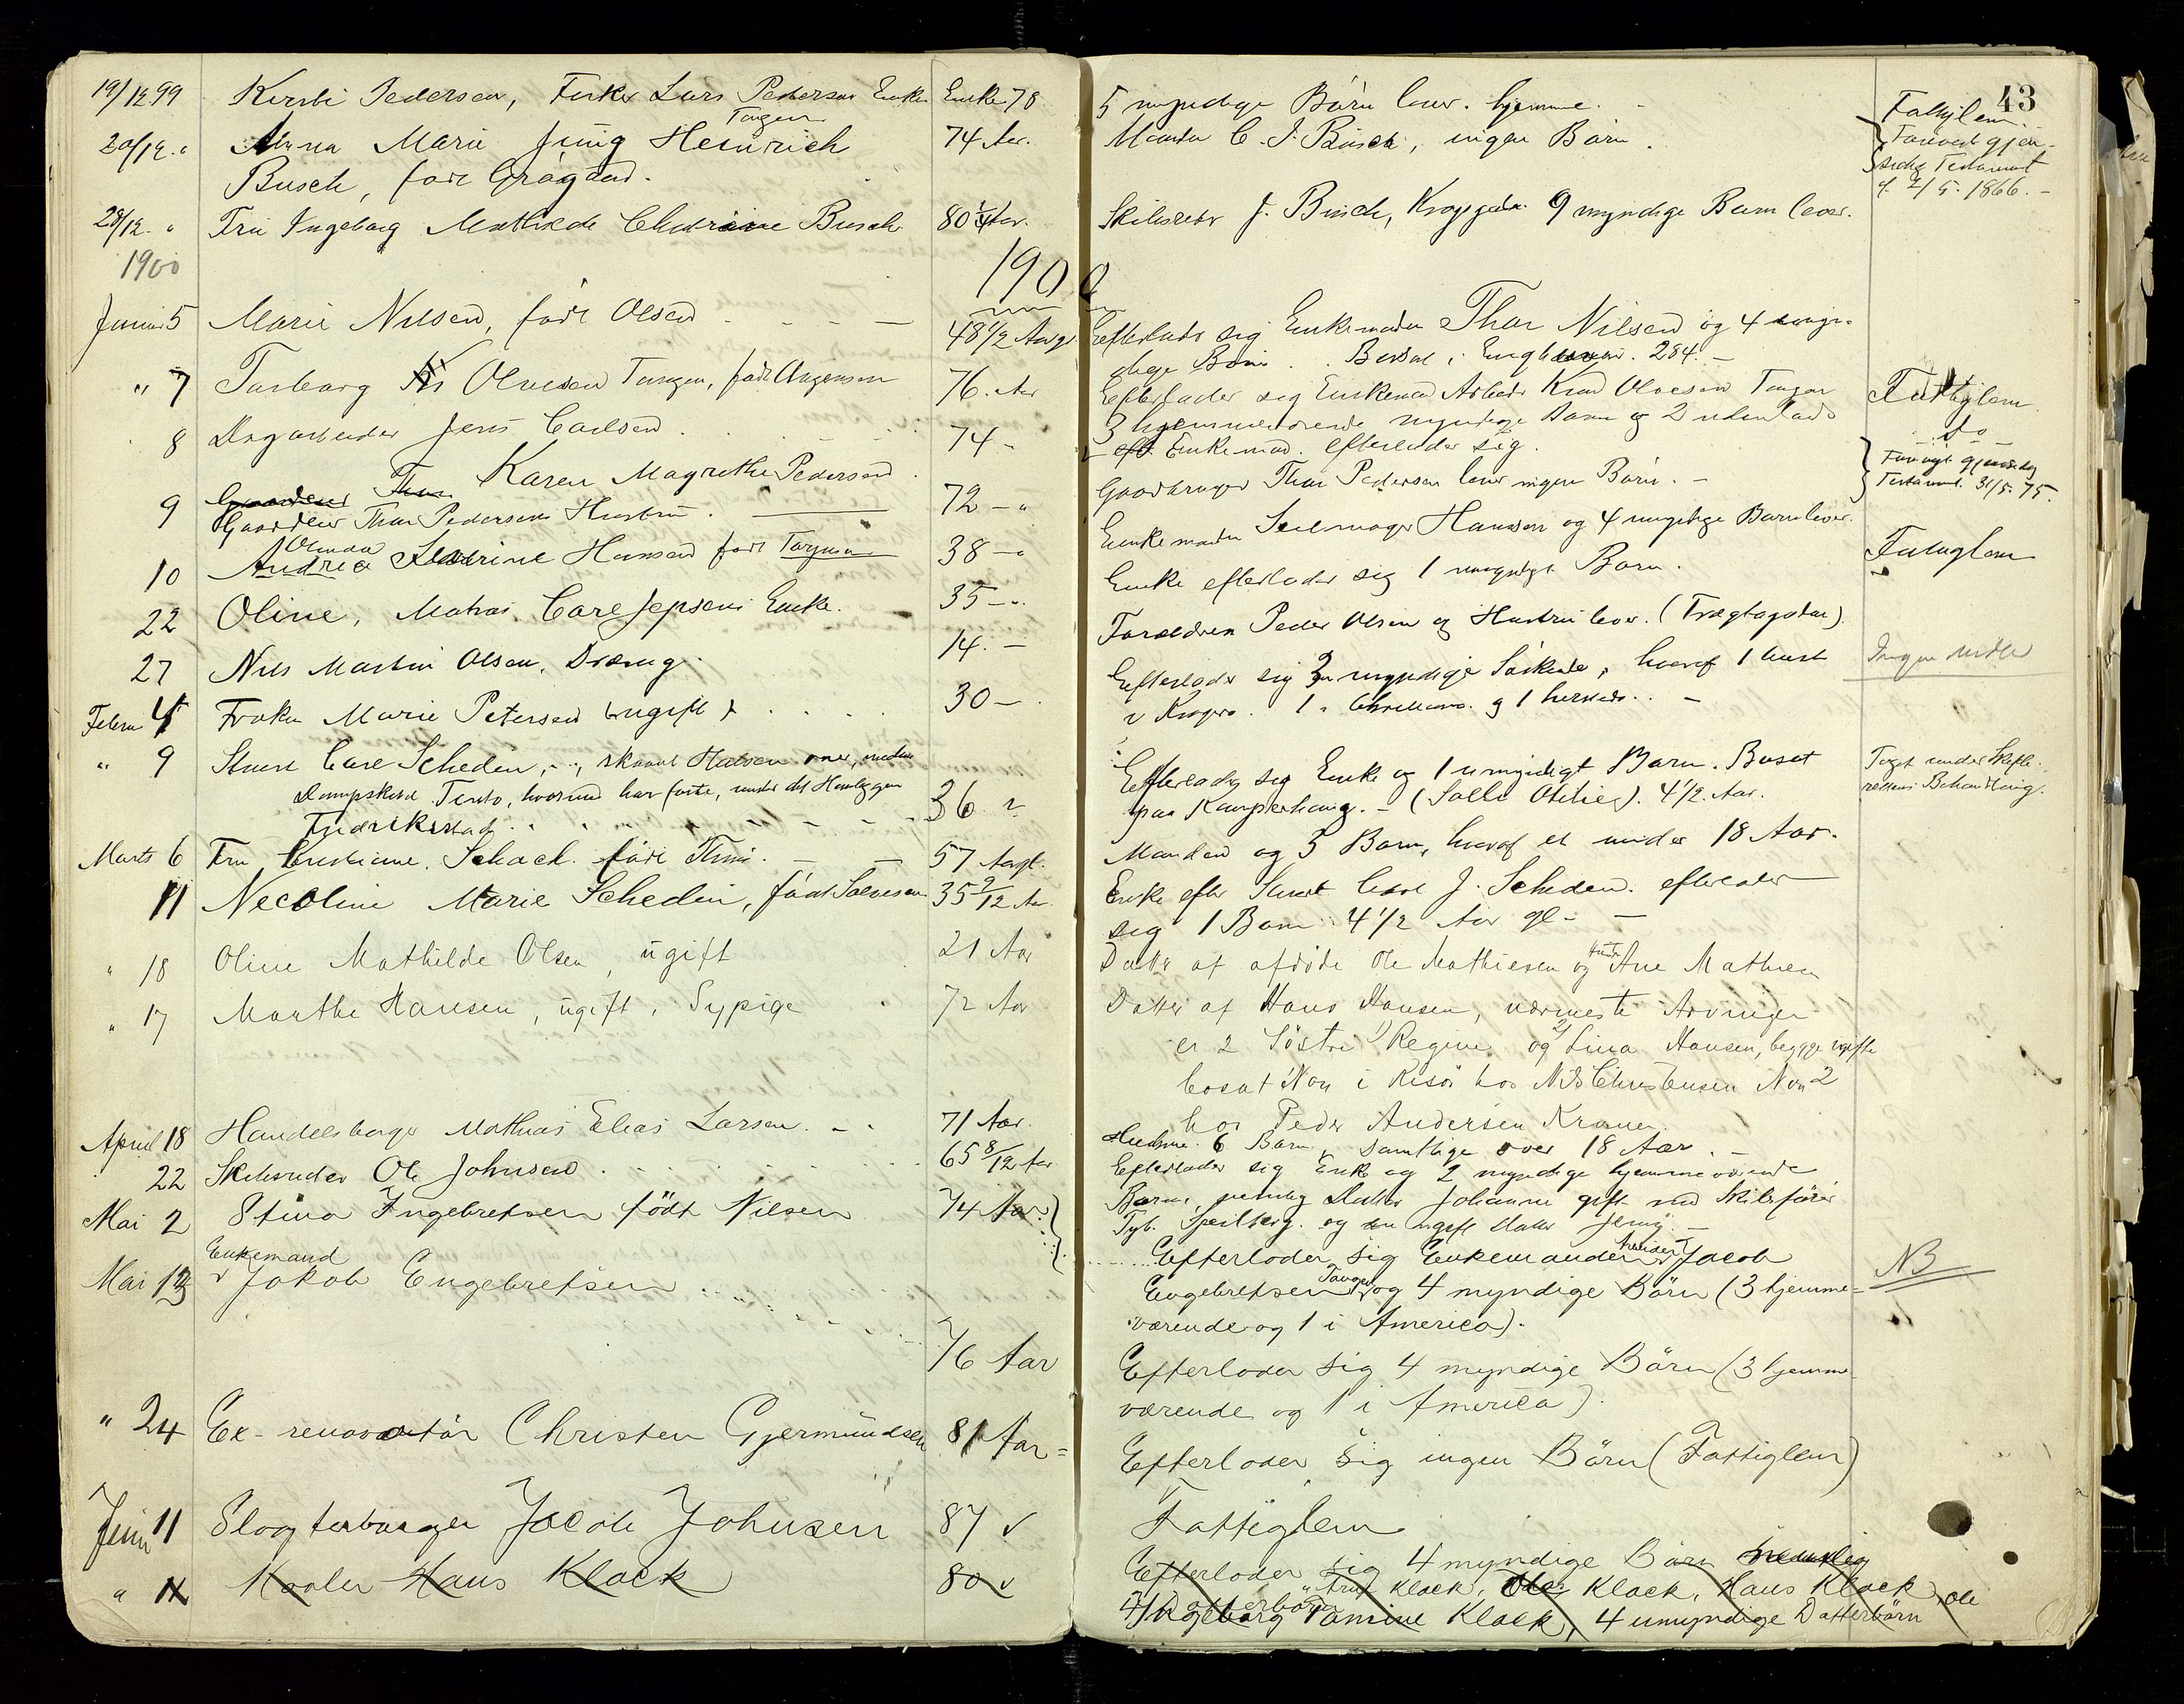 43
19/12 99 Kirsti Pedersen, Fisker Lars Pedersens Enke Enke 78 5 myndige Börn lever. hjemme. Fattiglem.
Tangen
20/12 " Anna Marie Jung Heinrich 74 Aar. Manden C. J. Busch, ingen Börn.
Busch, födt Grögaard. Testament
af 2/5. 1866. -
28/12 " Fru Ingeborg Mathilde Cathrine Busch 80 1/4 Aar. Skibsreder J. Busch, Kragerö. 9 myndige Barn lever.
1900 1900
Januar 5 Marie Nilsen, födt Olsen 48 1/2 Aar gl. Efterlader sig Enkemanden Thor Nilsen og 4 umyn-
dige Börn. 284. -
" 7 Torborg Olvesen Tangen, födt 76. Aar Efterlader sig Enkemand Arbeider Knud Olvesen Tangen Fattiglem
3 hjemmeværende myndige Barn og 2 udenlands
8 Dagarbeider Jens Carlsen 74 - Enkemand. efterlader sig. do
9 Karen Magrethe Pedersen 72 - " Gaardbruger Thor Pedersen lever ingen Börn. - gjensidig
Gaardeier Thor Pedersens Hustru. Testament. 31/5. 75.
10 Andrea Severine Hansen födt 38 - " Enkemanden Seilmager Hansen og 4 umyndige Barn lever.
22 Oline, Matros Carl Jepsens Enke. 35 - " Enke efterlader sig 1 umyndigt Barn. Fattiglem
27 Nils Martin Olsen. Dreng. 14. - Forældren Peder Olsen og Hustru lever. (Trægtegaden)
Februar 4 Fröken Marie Petersen (ugift) 30 - Efterlader sig 3 myndige Söskende, hvoraf 1 bosat Ingen Midler
i Kragerö. 1 i Christiania og 1 hersteds. -
" 9 Stuert Carl Scheden, Efterlader sig Enke og 1 umyndigt Barn. Bosat Taget under Skifte-
Dampskibet hvormed han forte, under dets Henliggen 36 " paa Kamperhaug. - (Salli Otilie). 4 1/2 Aar. rettens Behandling.
Fredrikstad
Marts 6 Fru Kristiane Schack födt Thni. 57 Aar gl. Manden og 3 Barn, hvoraf et under 18 Aar.
11 Necoline Marie Scheden, födt Salvesen 35 9/12 Aar. Enke efter Stuert Carl J. Scheden. efterlader
sig 1 Barn 4 1/2 Aar gl - -
" 18 Oline Mathilde Olsen, ugift 21 Aar Datter af afdöde Ole Mathiesen og Hustru Ane Mathisen
" 17 Marthe Hansen, ugift, Sypige 72 Aar Datter af Hans Hansen, nærmeste Arvinger
er 2 Söstre 1) Regine og 2) Lina Hansen, begge ugifte
bosat No 1 i Risör hos Nils Christensen No 2
hos Peder Andersen Kroner.
April 18 Handelsborger Mathias Elias Larsen. - 71 Aar. Hustrue. 6 Barn, samtlige over 18 Aar. -
22 Skibsreder Ole Johnsen 65 8/12 Aar Efterlader sig Enke og 2 myndige hjemmeværende
Barn, nemlig Datter Johanne gift med Skibsförer
Mai 2 Stina Ingebretsen födt Nilsen 74 Aar. Tyb. Speilberg. og en ugift Datter Jenny. -
Efterlader sig Enkemanden Jacob NB
Enkemand
Mai 13 Jakob Engebretsen Engebretsen Tangen og 4 myndige Börn (3 hjemme-
værende og 1 i America).
76 Aar Efterlader sig 4 myndige Börn (3 hjemme-
værende og 1 i America).
" 24 Ex-renovatör Christen Gjermundsen 81 Aar = Efterlader sig ingen Börn (Fattiglem)
Juni 11 Slagterborger Jacob Johnsen 87 " Fattiglem
" 14 Maaler Hans Klock 80 " Efterlader sig 4 myndige Börn nemlig
Klock, Klock, Hans Klock, Ole
Ingeborg Tomine Klock, 4 umyndige Datterbörn